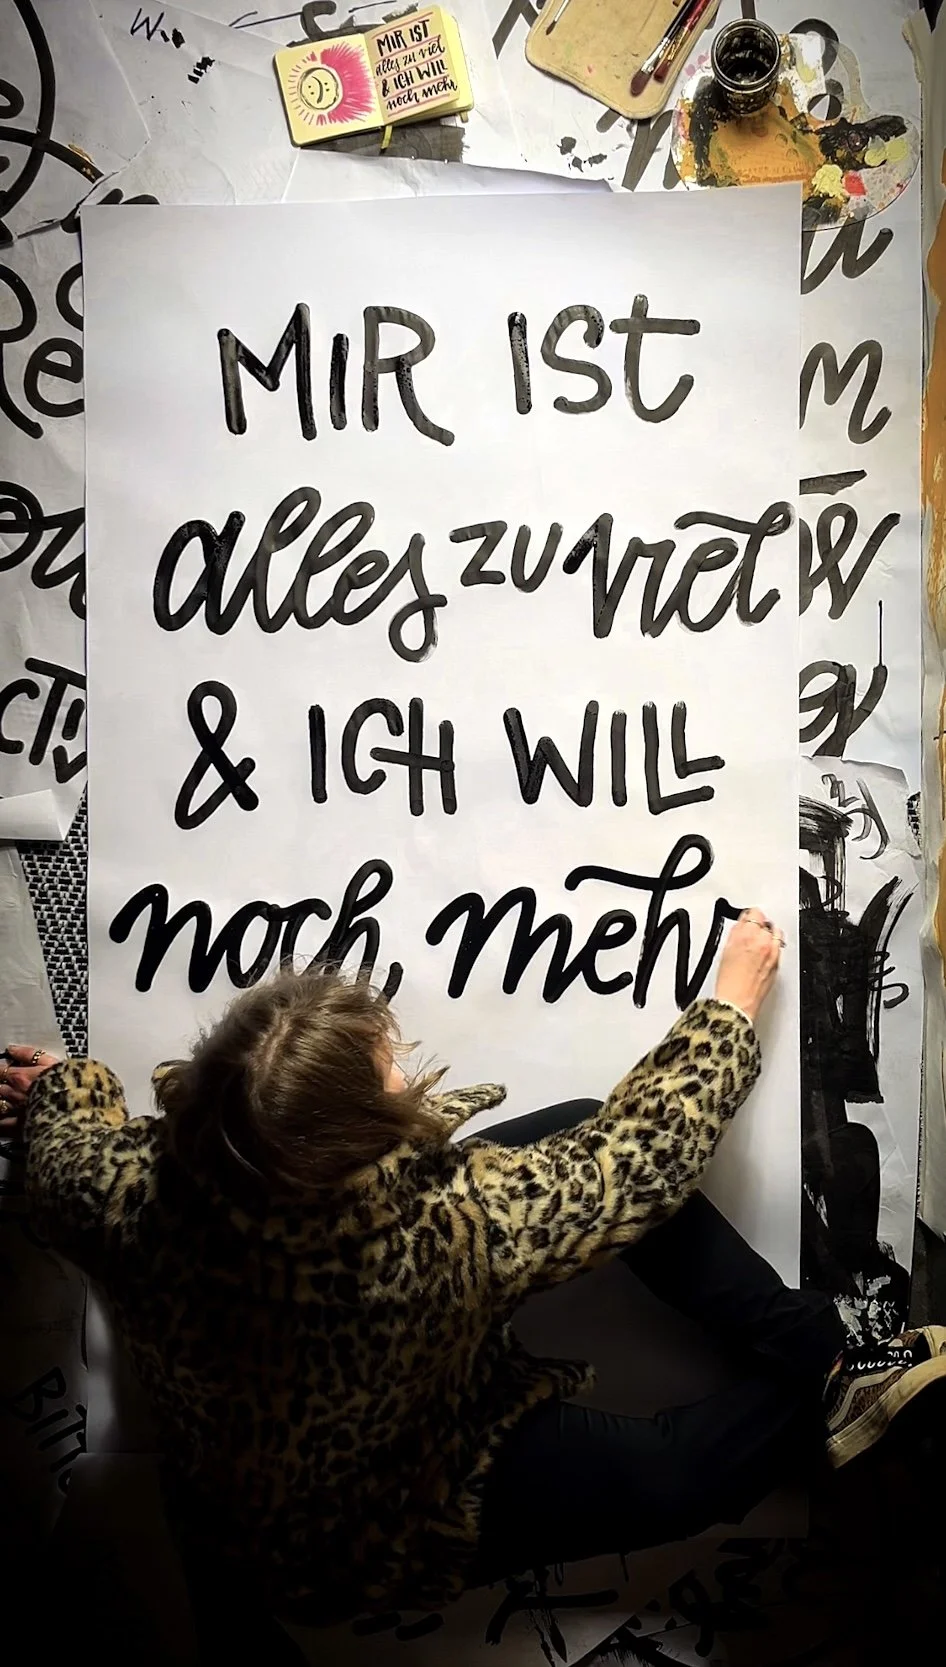 MIR IST
alles zu viel
& ICH WILL
noch mehr
MIR IST
alles zu viel
& ICH WILL
noch mehr